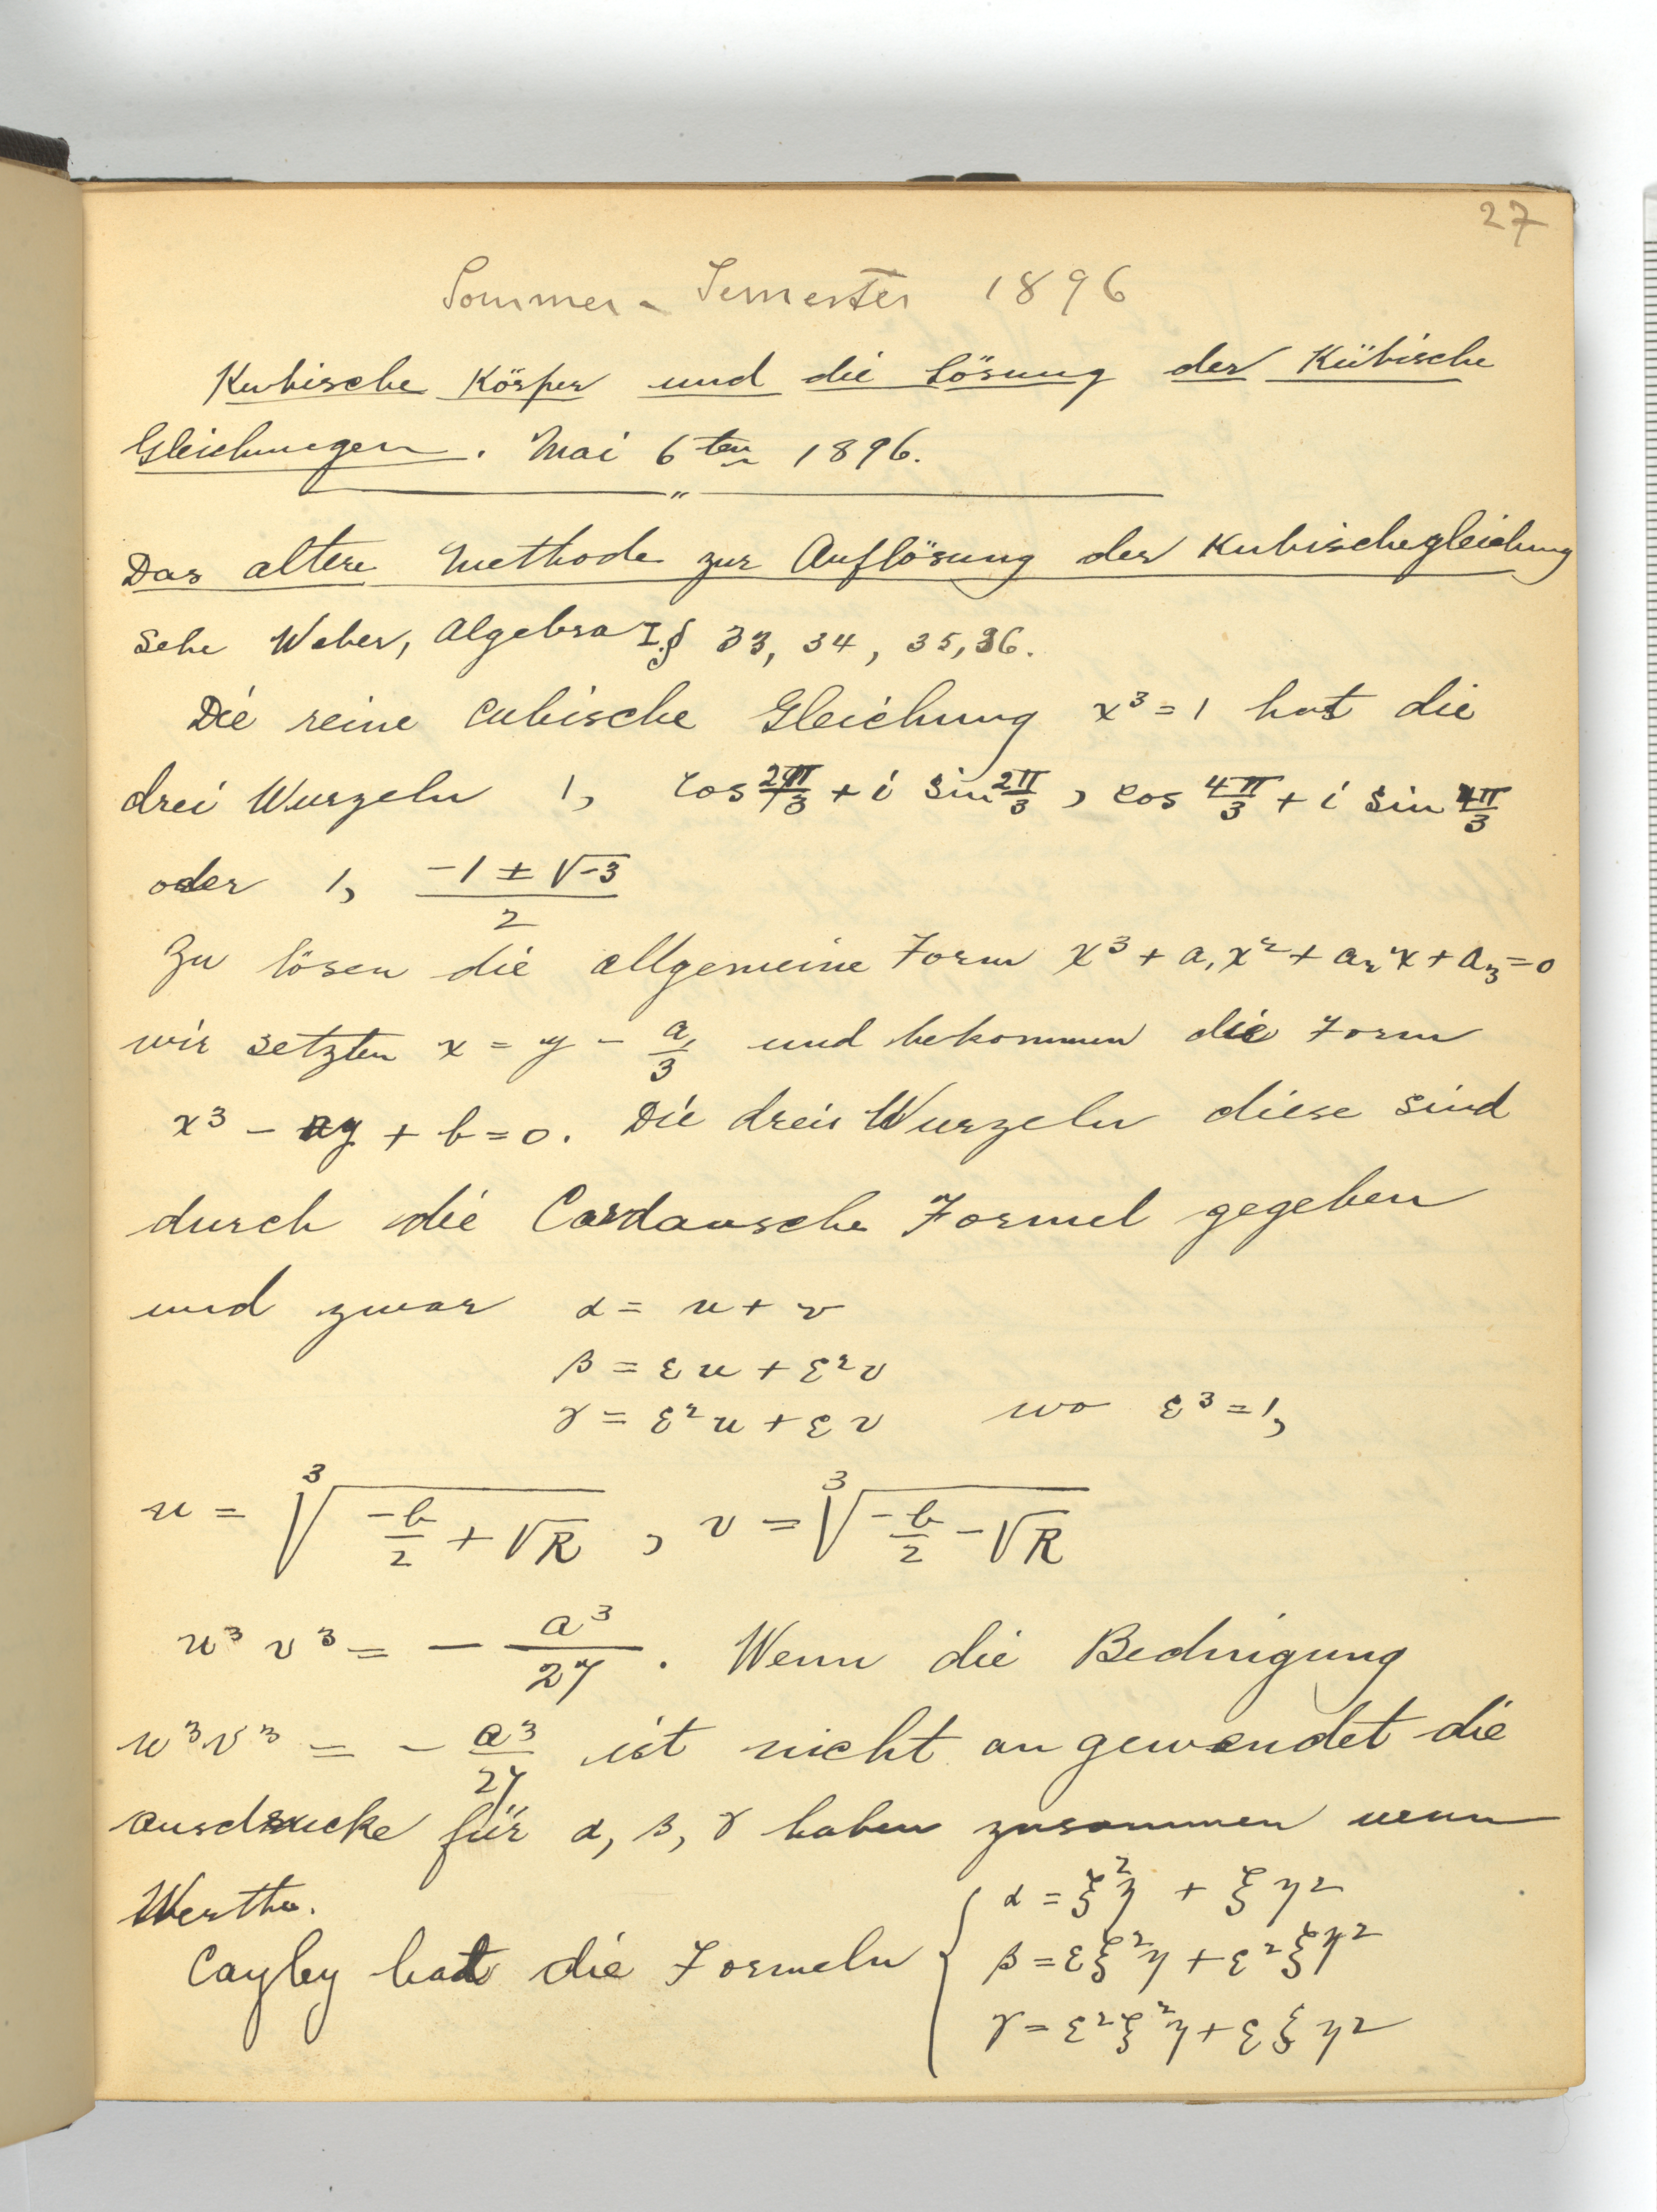 27
Sommer - Semester 1896
Kubische Körper und die Lösung der Kübische
Gleichungen. Mai 6ten 1896.
Das altere Methode zur Auflösung der Kubischegleichung
Sehe Weber, Algebra I § 33, 34, 35, 36.
Die reine cubische Gleichung x³ = 1 hat die
drei Wurzeln 1, cos 2π/3 + i sin 2π/3, cos 4π/3 + i sin 4π/3
oder 1, (-1 ± √-3)/2
Zu lösen die allgemeine Form x³ + a₁x² + a₂x + a₃ = 0
wir setzten x = y - a₁/3 und bekommen die Form
x³ - ay + b = 0. Die drei Wurzeln diese sind
durch die Cardansche Formel gegeben
und zwar α = u + v
β = εu + ε²v
γ = ε²u + εv wo ε³ = 1,
u = ∛(-b/2 + √R), v = ∛(-b/2 - √R)
u³v³ = - a³/27. Wenn die Bedingung
u³v³ = - a³/27 ist nicht angewendet die
ausdrucke für α, β, γ haben zusammen neun
Werthe.
Cayley hat die Formeln { α = ξ²η + ξη²
β = εξ²η + ε²ξη²
γ = ε²ξ²η + εξη²